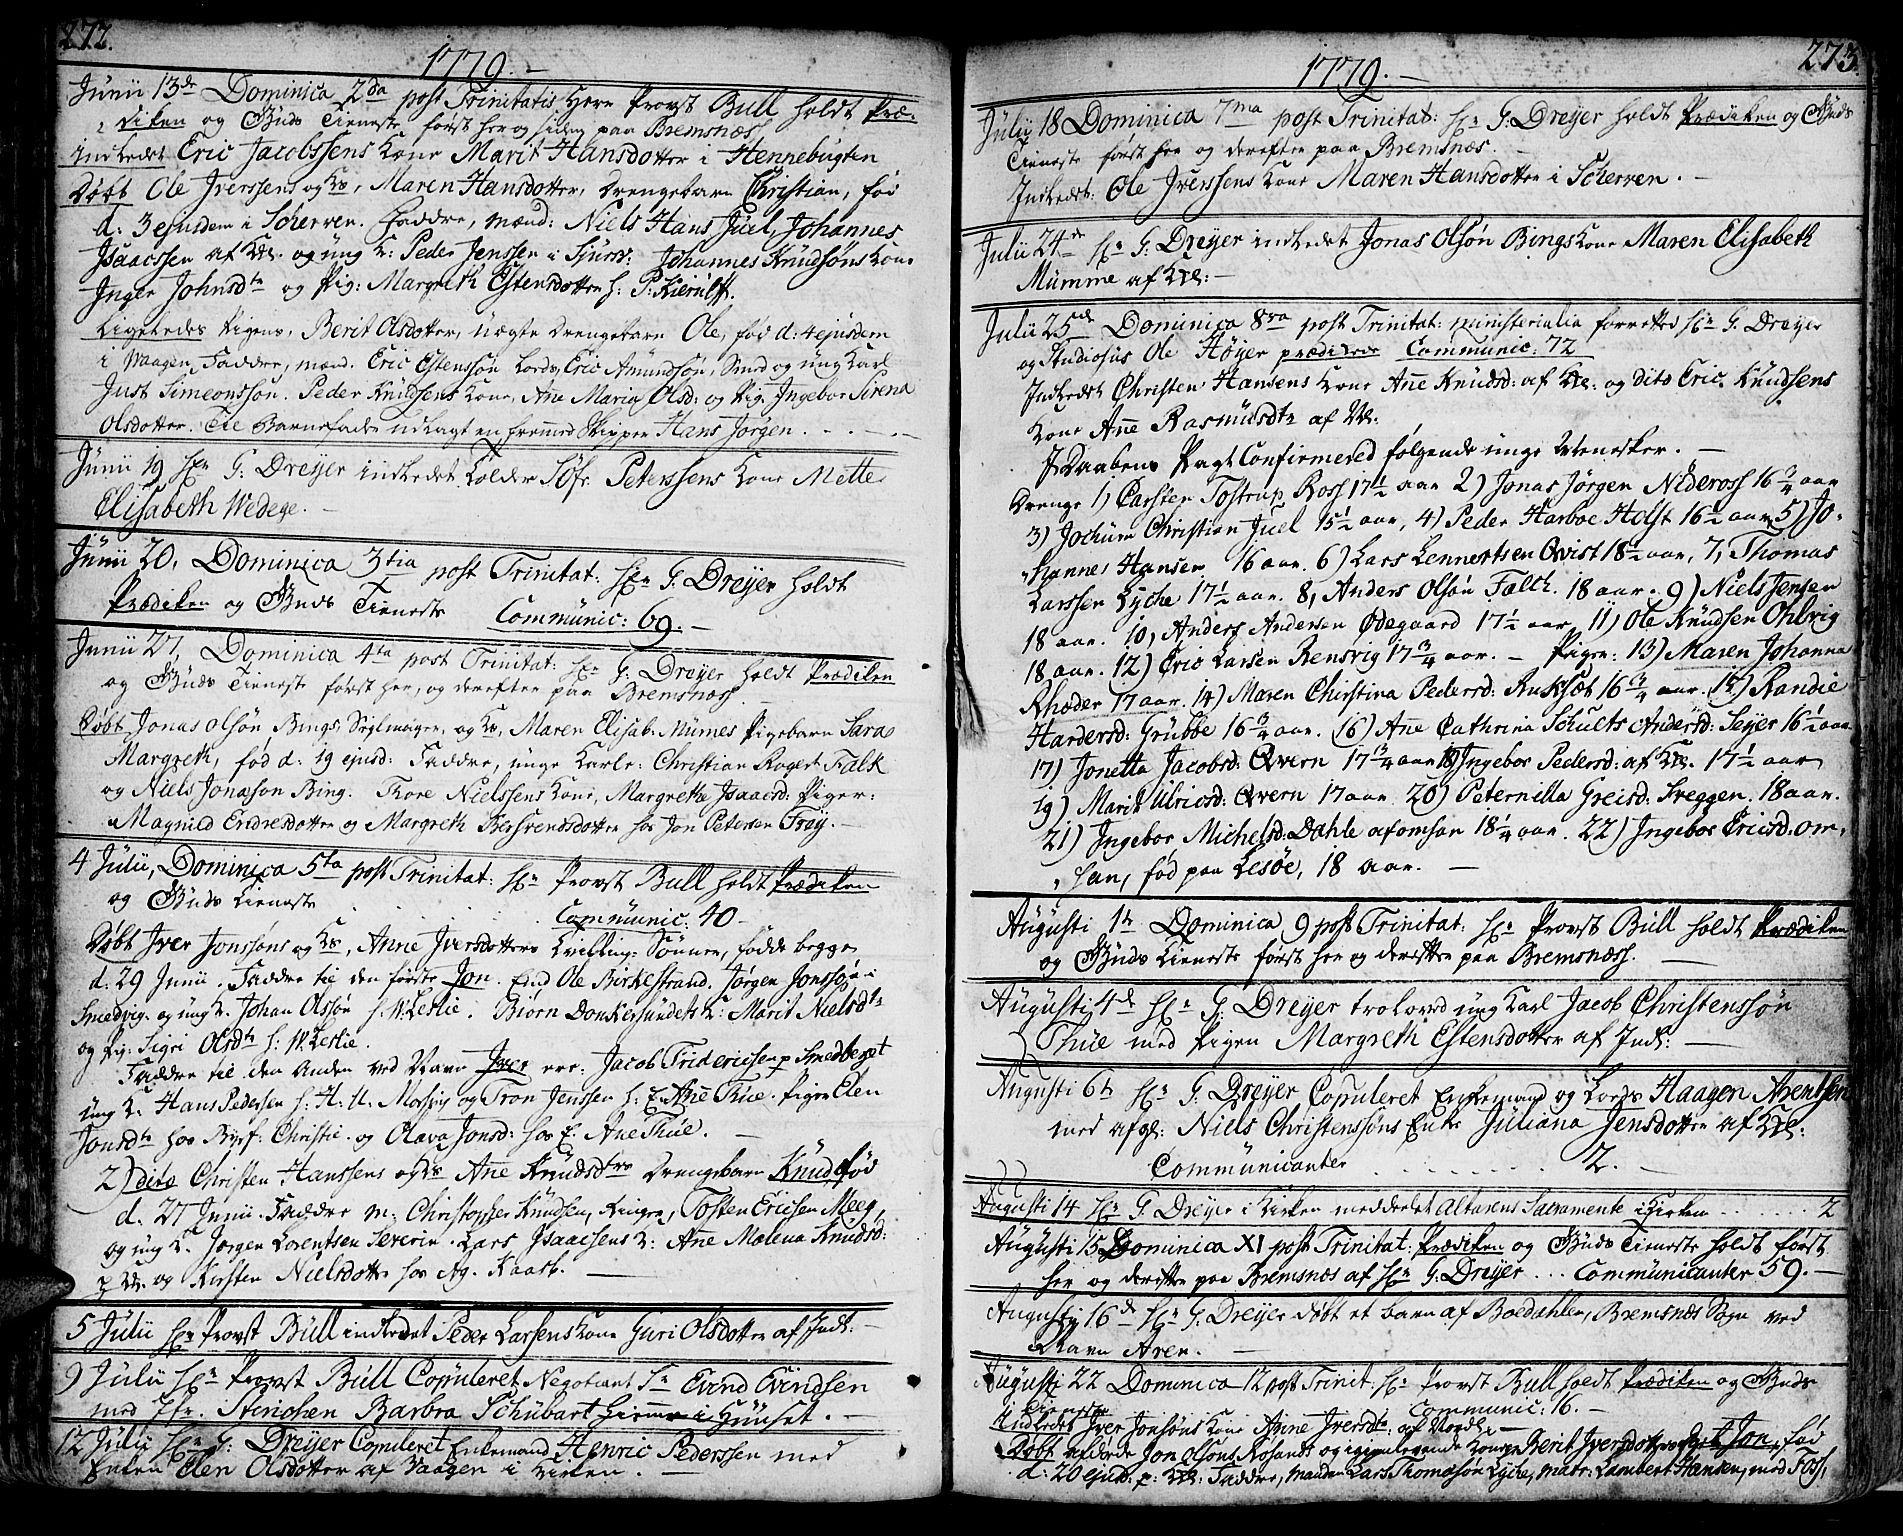 272.
1779. –
Junii 13de Dominica 2da post Trinitatis Herr Provst Bull holdt Præ-
diken og Guds Tieneste først her og siden paa Bremsnæs.
Indledet Eric Jacobssens Kone Marit Hansdotter i Hennebugten
Døbt Ole Iverssens og Ks, Maren Hansdotter, Drengebarn Christian, fød
d: 3 ejusdem i Scherven. Faddre, mænd: Niels Hans Juel, Johannes
Isaacssen af Kl. og ung K: Peder Jenssen i Johannes Knudsøns Kone
Inger Johnsdtr og Pig: Margreth Estensdotter h: P: Kierulf.
Ligeledes Pigens, Berit Olsdotter, uægte Drengebarn Ole, fød d: 4 ejusdem
i Vaagen, Faddre, mænd. Eric Estenssøn Lords, Eric Amundsøn, Smed og ung Karl
Just Simeonssøn. Peder Knudsens Kone, Ane Maria Olsd: og Pig. Ingebor Sirena
Olsdotter. Til Barnefader udlagt en fremmed Skipper Hans Jørgen. . – . . –
Junii 19 Hr G: Dreyer indledet Tolder Søfr. Peterssens Kone Mette
Elisabeth Wedege. –
Junii 20, Dominica 3tia post Trinitat: Hr G: Dreyer holdt
Prædiken og Guds Tieneste Communic: 69. –
Junii 27, Dominica 4ta post Trinitat: Hr G: Dreyer holdt Prædiken
og Guds Tieneste først her, og derefter paa Bremsnæs.
Døbt Jonas Olsøn Bings, Seylmager, og Ks, Maren Elisab: Mumes Pigebarn Sara
Margreth, fød d: 19 ejusd: Faddre, unge Karle: Christian Rogert Falk
og Niels Jonæson Bing. Thore Nielssens Kone, Margrethe Isaacsd: Piger:
Magnild Endresdotter og Margreth Bersvendsdotter hos Jon Petersen Frøy. –
4 Julii, Dominica 5ta post Trinitat: Hr Provst Bull holdt Prædiken
og Guds Tieneste . . . Communic: 40 –
Døbt Iver Jonssøns og Ks, Anne Iversdotters Tvilling-Sønner, fødde begge
d: 29 Junii. Faddre til den første Jon. Ole Birkestrand. Jørgen Jonssøn i
Smedvig. og ung K. Johan Olssøn h: W: Leslie. Biørn Donkersundets K: Marit Nielsdtr
og Pig: Sigri Olsdtr h: W. Leslie.
Faddre til den Anden ved Navn Iver ere: Jacob Fridericsen p Smedberget
ung K. Hans Pedersen h: H: U: Mossvig og Tron Jenssen h: E. Ane Thue. Pigen Elen
Jonsdtr hos Byef: Christie. og Olava Jonsd: hos E. Ane Thue. –
2) dito Christen Hanssens og Ks Ane Knudsdtrs Drengebarn Knud, fød
d: 27 Junii. Faddre m: Christopher Knudsen, Ringer, Tosten Ericsen Meeg,
og ung K. Jørgen Lorentsen Severin. Lars Isaacsens K: Ane Malena Knudsd:
p Kl. og Kirsten Nielsdotter hos Ag. Kaasb. –
5 Julii Hr Provst Bull indledet Peder Larsens Kone Guri Olsdotter af Indl: –
9 Julii Hr Provst Bull Copuleret Negotiant Sr Evind Evindsen
med Jfr. Stenchen Barbra Schubart hiemme i Huuset. –
12 Julii Hr G: Dreyer Copuleret Enkemand Henric Pederssen med
Enken Elen Olsdotter af Vaagen i Kirken. –
273.
1779. –
Julii 18 Dominica 7ma post Trinitat: Hr G: Dreyer holdt Prædiken og Guds
Tieneste først her og derefter paa Bremsnæs. –
Indledet: Ole Iverssens Kone Maren Hansdotter i Scherven. –
Julii 24de Hr G: Dreyer indledet Jonas Olsøn Bings Kone Maren Elisabeth
Mumme af Kl: –
Julii 25de Dominica 8va post Trinitat: ministerialia forretted Hr G: Dreyer
og Studiosus Ole Høyer prædikede Communic: 72
Indledet Christen Hansens Kone Ane Knudsd: af Kl. og dito Eric Knudsens
Kone Ane Rasmusdtr af Kl.
I Daabens Pagt Confirmered følgende unge Menesker. –
Drenge 1) Carsten Tostrup Ross 17½ aar 2) Jonas Jørgen Nideross 16¾ aar
3) Jochum Christian Juel 15½ aar, 4) Peder Harboe Holst 16½ aar 5) Jo-
hannes Hansen 16 aar. 6) Lars Lennertsen Qvist 18½ aar. 7, Thomas
Larssen Lyche 17½ aar. 8, Anders Olsøn Falch. 18 aar. 9) Niels Jensen
18 aar. 10, Anders Andersen Ødegaard 17½ aar 11) Ole Knudsen Ohlvig
18 aar. 12) Eric Larsen Rensvig 17¾ aar. – Piger: 13) Maren Johanna
Rhøder 17 aar. 14) Maren Christina Pedersd: Ruksæt 16¾ aar. 15) Randie
Hardersd: Grubbe 16¾ aar. 16) Ane Cathrina Schults Andersd: Seyer 16½ aar
17) Jonetta Jacobsd: Qvern 17¾ aar 18) Ingebor Pedersd: af Kl. 17½ aar
19) Marit Ulricsd: Qvern 17 aar. 20) Peternilla Greisd: Sveggen. 18 aar.
21) Ingebor Michelsd: Dahle af omsan 18¼ aar. 22) Ingebor Ericsd: om-
san, fød paa Lesöe, 18 aar. –
Augusti 1te Dominica 9 post Trinitat: Hr Provst Bull holdt Prædiken
og Guds Tieneste først her og derefter paa Bremsnæs. –
Augusti 4de Hr G: Dreyer troloved ung Karl Jacob Christenssøn
Thue med Pigen Margreth Estensdotter af Indl: –
Augusti 6te Hr G: Dreyer Copuleret Enkemand og Lords Haagen Arentsen
med afgl: Niels Christenssøns Enke Juliana Jensdotter af Kl:
Communicanter . . . . . . 2. –
Augusti 14 Hr G: Dreyer i Kirken meddeelet Altarens Sacramente i Kirken . . . . . . 2
Augusti 15 Dominica XI post Trinitat: Prædiken og Guds Tieneste holdt først
her og derefter paa Bremsnæs af Hr G: Dreyer . . . Communicanter 59. –
Augusti 16de Hr G: Dreyer døbt et barn af Boedahlen, Bremsnæs Sogn ved
Navn Aren. –
Augusti 22 Dominica 12 post Trinit: Hr Provst Bull holdt Prædiken og Guds
Tieneste Communic: 16. –
Indledet Iver Jonsøns Kone Anne Iversdtr af Nordl:
Døbt afdøde Jon Olsøns Rosandt og igienlevende Kones Berit Iversdotters Jon, fød
d: 20 ejusd: p: Kl: Faddre, manden Lars Thomasøn Lyche, matr: Lambert Hansen, mod Foss,